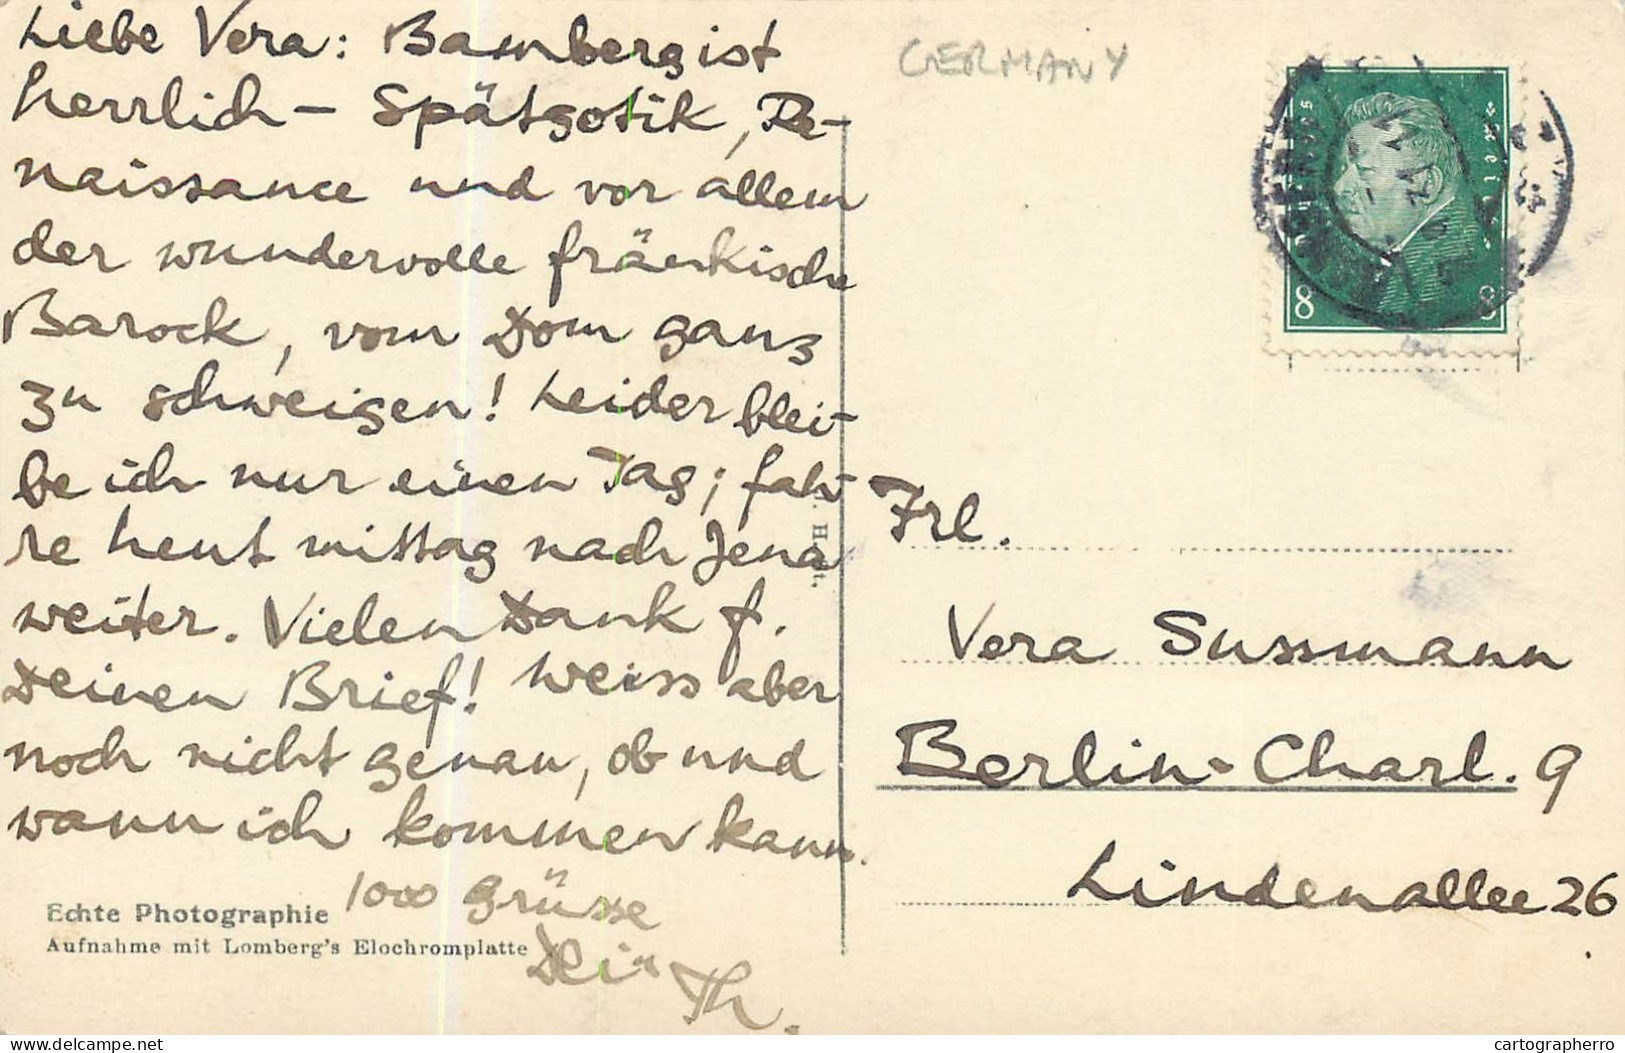 Liebe Vera: Bamberg ist
herrlich – Spätgotik, Re-
naissance und vor allem
der wundervolle fränkische
Barock, vom Dom ganz
zu schweigen! Leider blei-
be ich nur einen Tag; fah-
re heut mittag nach Jena
weiter. Vielen Dank f.
Deinen Brief! Weiss aber
noch nicht genau, ob und
wann ich kommen kann.
1000 Grüsse
Dein Th.
Echte Photographie
Aufnahme mit Lomberg's Elochromplatte
GERMANY
8 8
Frl.
Vera Sussmann
Berlin-Charl. 9
Lindenallee 26
delcampe.net
cartographerro